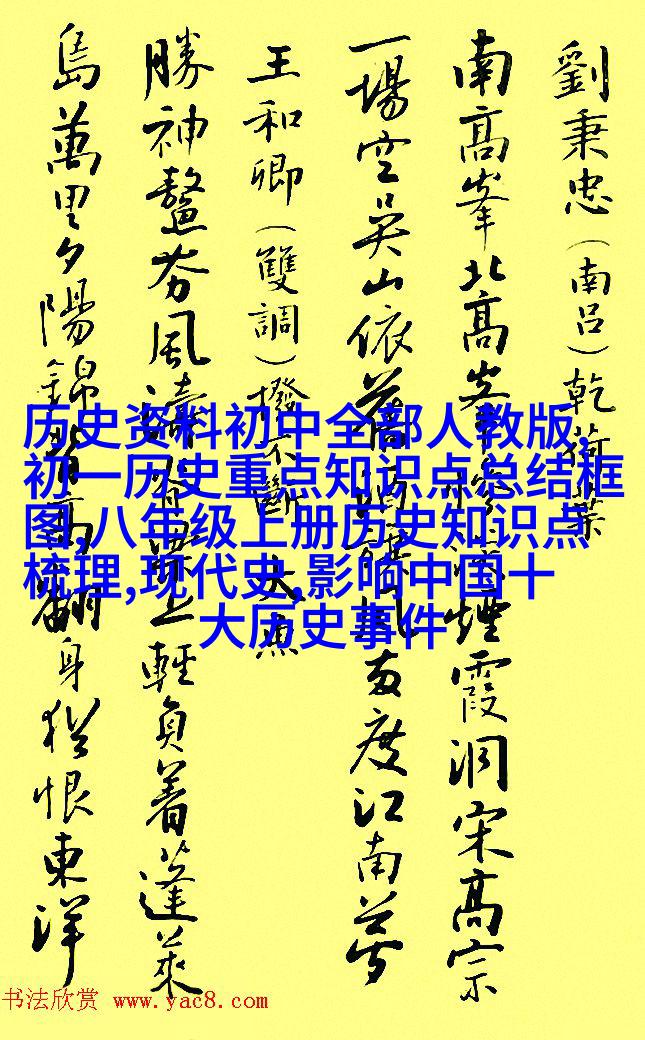 劉秉忠(南呂)乾荷葉
南高峯北高峯慘淡煙霞洞宋高宗
一場空吳山依舊酒旗風兩度江南夢
王和卿(雙調)撥不斷 大魚
勝神鼇夯風濤脊梁上輕負着蓬萊
島萬里夕陽錦背高翻身猶恨東洋
历史资料初中全部人教版,
初一历史重点知识点总结框
图,八年级上册历史知识点
梳理,现代史,影响中国十
大历史事件
书法欣赏 www.yac8.com